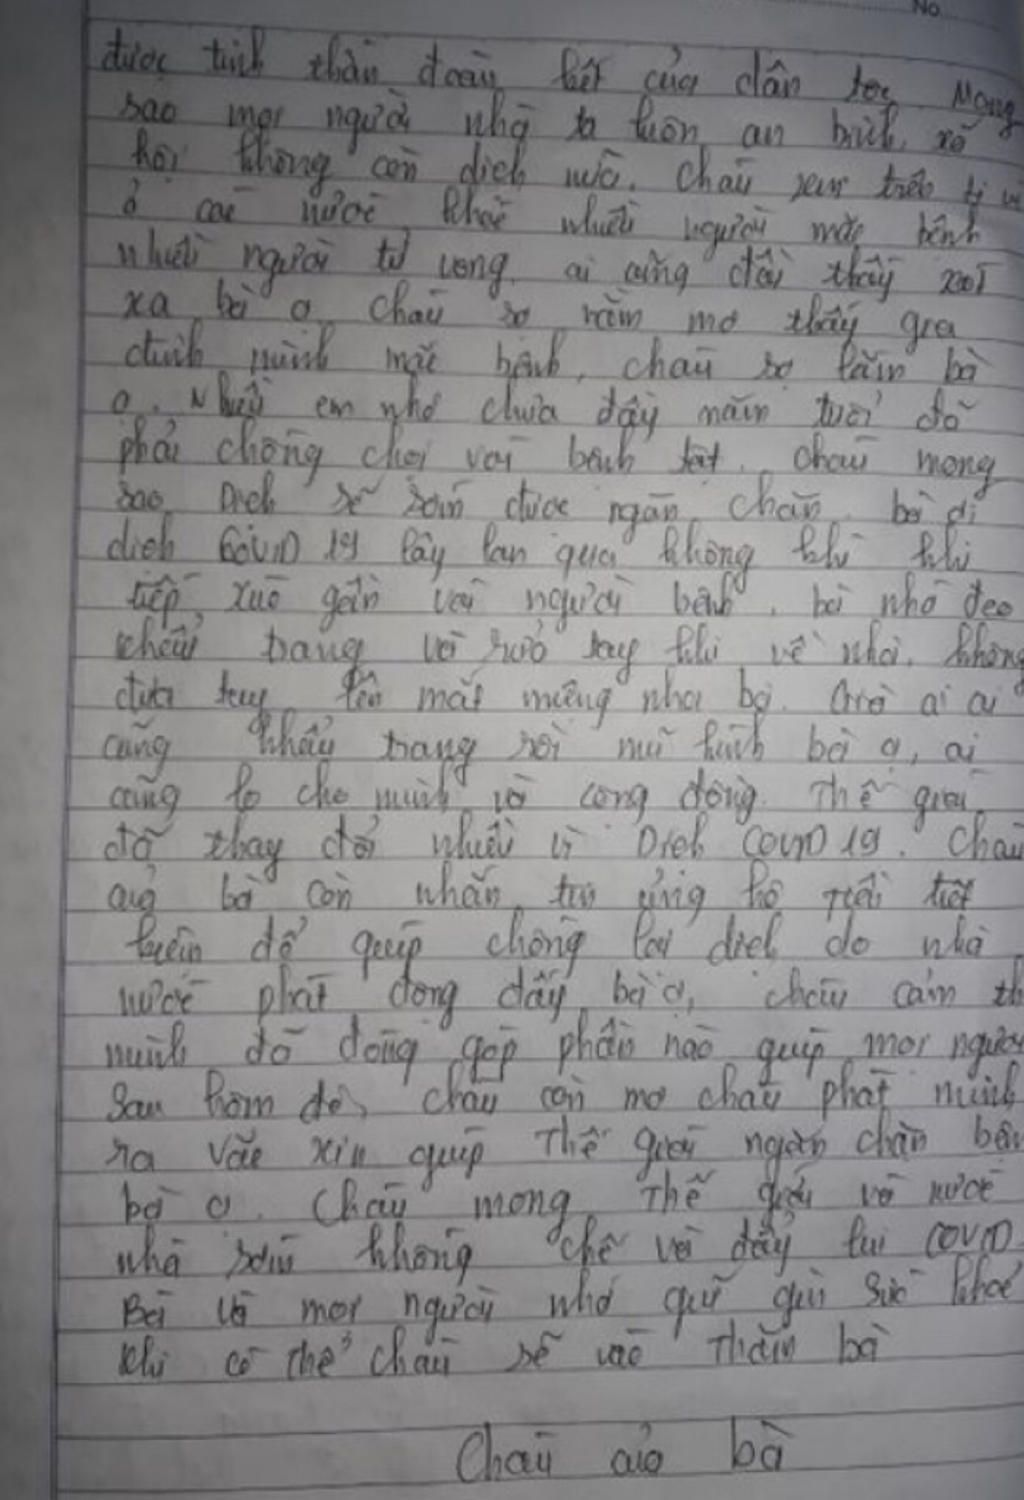 No
được tinh thần đoàn kết của dân tộc. Mong
sao mọi người nhà ta luôn an bình, xã
hội không còn dịch nữa. Cháu xem trên ti vi
ở các nước khác nhiều người mắc bệnh
nhiều người tử vong, ai cũng đều thấy xót
xa bà ạ. Cháu sợ nằm mơ thấy gia
đình mình mắc bệnh, cháu sợ lắm bà
ạ. Nhiều em nhỏ chưa đầy năm tuổi đã
phải chống chọi với bệnh tật. Cháu mong
sao Dịch sẽ sớm được ngăn chặn. bà
dịch COVID 19 lây lan qua không khí khi
tiếp xúc gần với người bệnh, bà nhớ đeo
khẩu trang và rửa tay khi về nhà. không
đưa tay lên mắt miệng nha bà. ai ai
cũng khẩu trang rồi mũ kính bà ạ, ai
cũng lo cho mình và cộng đồng. Thế giới
đã thay đổi nhiều vì Dịch COVID 19. Cháu
của bà còn nhắn tin ủng hộ tiết
kiệm để giúp chống lại dịch do nhà
nước phát động đấy bà ạ, cháu cảm th
mình đã đóng góp phần nào giúp mọi người
Sau hôm đó, cháu còn mơ cháu phát minh
ra vắc xin giúp Thế giới ngăn chặn bện
bà ạ. Cháu mong Thế giới và nước
nhà sớm khống chế và đẩy lui COVID.
Bà và mọi người nhớ giữ gìn sức khoẻ
khi có thể cháu sẽ vào Thăm bà
Cháu của bà